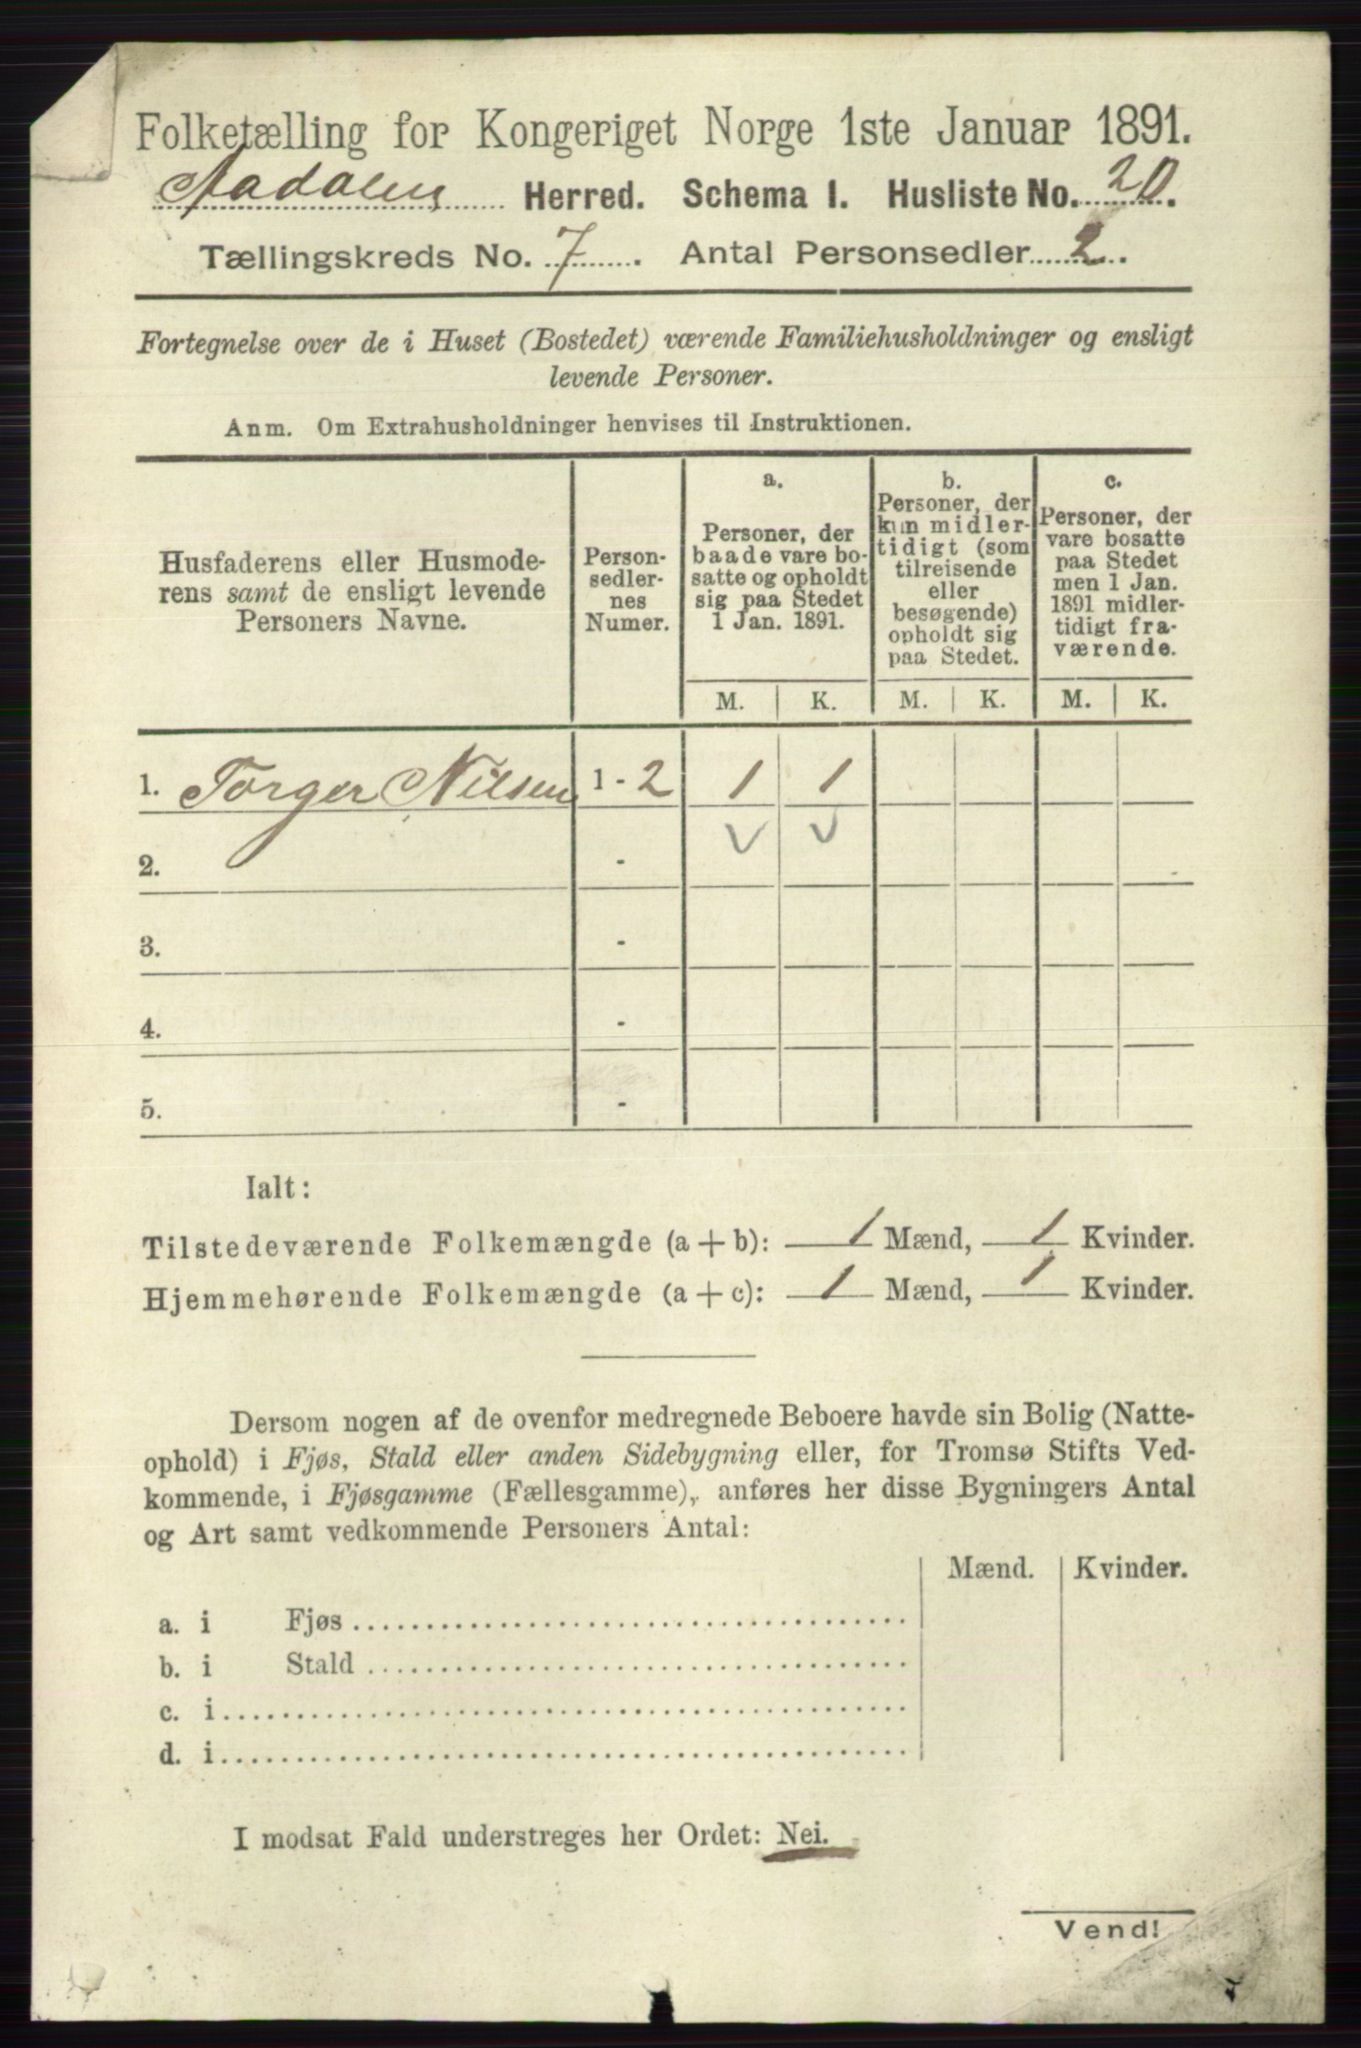 Folketælling for Kongeriget Norge 1ste Januar 1891.
Aadalens Herred. Schema I. Husliste No. 20.
Tællingskreds No. 7. Antal Personsedler 2.
Fortegnelse over de i Huset (Bostedet) værende Familiehusholdninger og ensligt
levende Personer.
Anm. Om Extrahusholdninger henvises til Instruktionen.
Husfaderens eller Husmode-
rens samt de ensligt levende
Personers Navne.
Person-
sedler-
nes
Numer.
a.
Personer, der
baade vare bo-
satte og opholdt
sig paa Stedet
1 Jan. 1891.
b.
Personer, der
kun midler-
tidigt (som
tilreisende
eller
besøgende)
opholdt sig
paa Stedet.
c.
Personer, der
vare bosatte
paa Stedet
men 1 Jan.
1891 midler-
tidigt fra-
værende.
M. K. M. K. M. K.
1. Torger Nilsen 1 - 2 1 1
2. -
3. -
4. -
5. -
Ialt:
Tilstedeværende Folkemængde (a + b): 1 Mænd, 1 Kvinder.
Hjemmehørende Folkemængde (a + c): 1 Mænd, 1 Kvinder.
Dersom nogen af de ovenfor medregnede Beboere havde sin Bolig (Natte-
ophold) i Fjøs, Stald eller anden Sidebygning eller, for Tromsø Stifts Ved-
kommende, i Fjøsgamme (Fællesgamme), anføres her disse Bygningers Antal
og Art samt vedkommende Personers Antal:
Mænd. Kvinder.
a. i Fjøs
b. i Stald
c. i
d. i
I modsat Fald understreges her Ordet: Nei.
Vend!